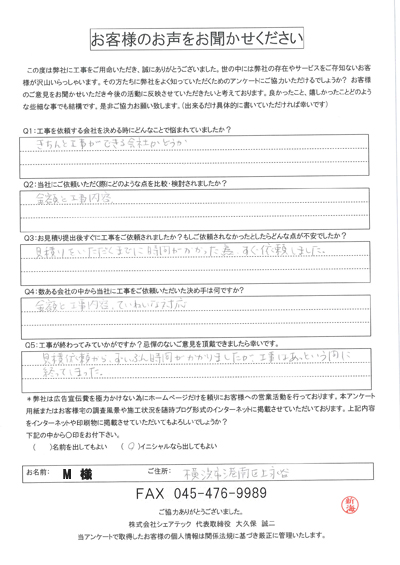 お客様のお声をお聞かせください
この度は弊社に工事をご用命いただき、誠にありがとうございました。世の中には弊社の存在やサービスをご存知ないお客
様が沢山いらっしゃいます。その方たちに弊社をよく知っていただくためのアンケートにご協力いただけるでしょうか？ お客様
のご意見をお聞かせいただき今後の活動に反映させていただきたいと考えております。良かったこと、嬉しかったことどのよう
な些細な事でも結構です。是非ご協力お願い致します。（出来るだけ具体的に書いていただければ幸いです）
Q1：工事を依頼する会社を決める時にどんなことで悩まれていましたか？
きちんと工事ができる会社かどうか
Q2：当社にご依頼いただく際にどのような点を比較・検討されましたか？
金額と工事内容
Q3：お見積り提出後すぐに工事をご依頼されましたか？もしご依頼されなかったとしたらどんな点が不安でしたか？
見積りをいただくまでに時間がかかった為、すぐ依頼しました。
Q4：数ある会社の中から当社に工事をご依頼いただいた決め手は何ですか？
金額と工事内容、ていねいな対応
Q5：工事が終わってみていかがですか？忌憚のないご意見を頂戴できましたら幸いです。
見積依頼から、ずいぶん時間がかかりましたが、工事はあっという間に
終ってしまった。
＊弊社は広告宣伝費を極力かけない為にホームページだけを頼りにお客様への営業活動を行っております。本アンケート
用紙またはお客様宅の調査風景や施工状況を随時ブログ形式のインターネットに掲載させていただいております。上記内容
をインターネットや印刷物に掲載させていただいてもよろしいでしょうか？
下記の中から〇印をお付け下さい。
（ ）名前を出してもよい （〇）イニシャルなら出してもよい
お名前： M 様 ご住所： 横浜市港南区上永谷
FAX 045-476-9989
ご協力ありがとうございました。
株式会社シェアテック 代表取締役 大久保 誠二
当アンケートで取得したお客様の個人情報は関係法規に基づき厳正に管理いたします。